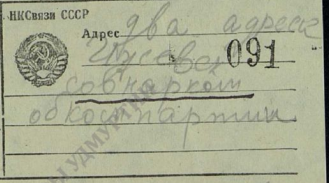 НКСвязи СССР
Адрес два адреса
Ижевск 091
совнарком
обком партии
УДМУРТИЯ